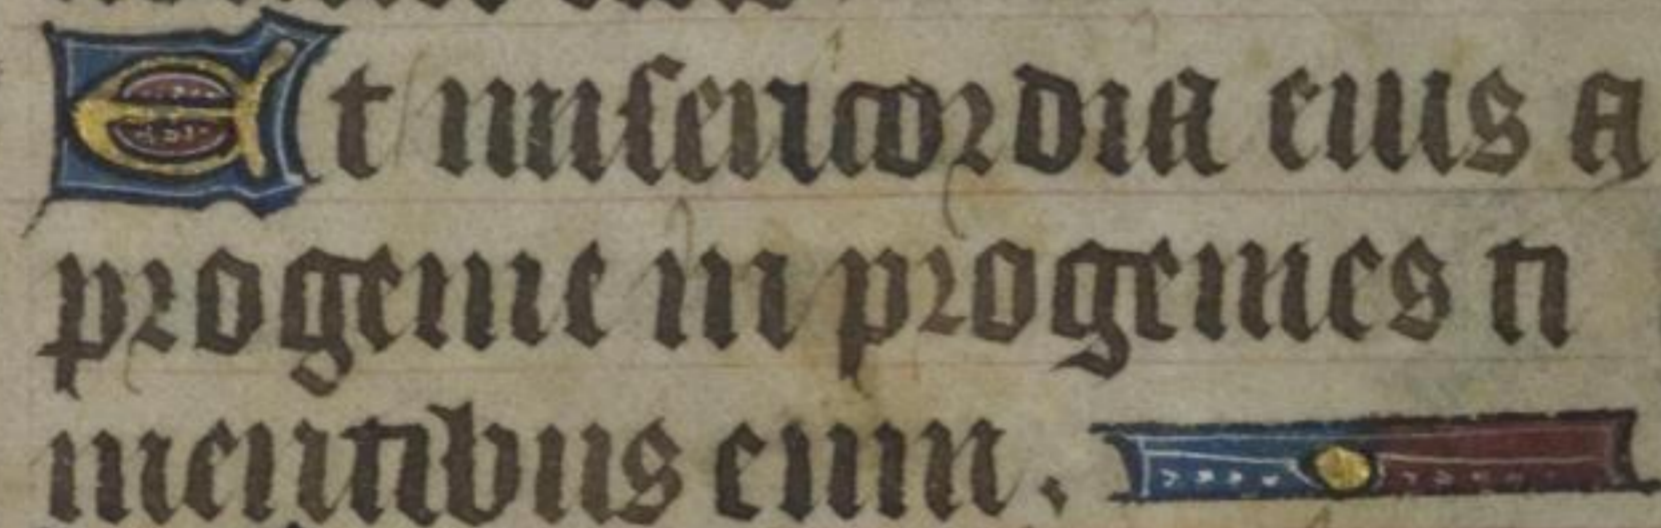 Et misericordia eius a
progenie in progenies ti
mentibus eum.